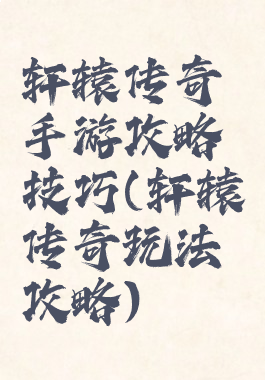 轩辕传奇
手游攻略
技巧(轩辕
传奇玩法
攻略)